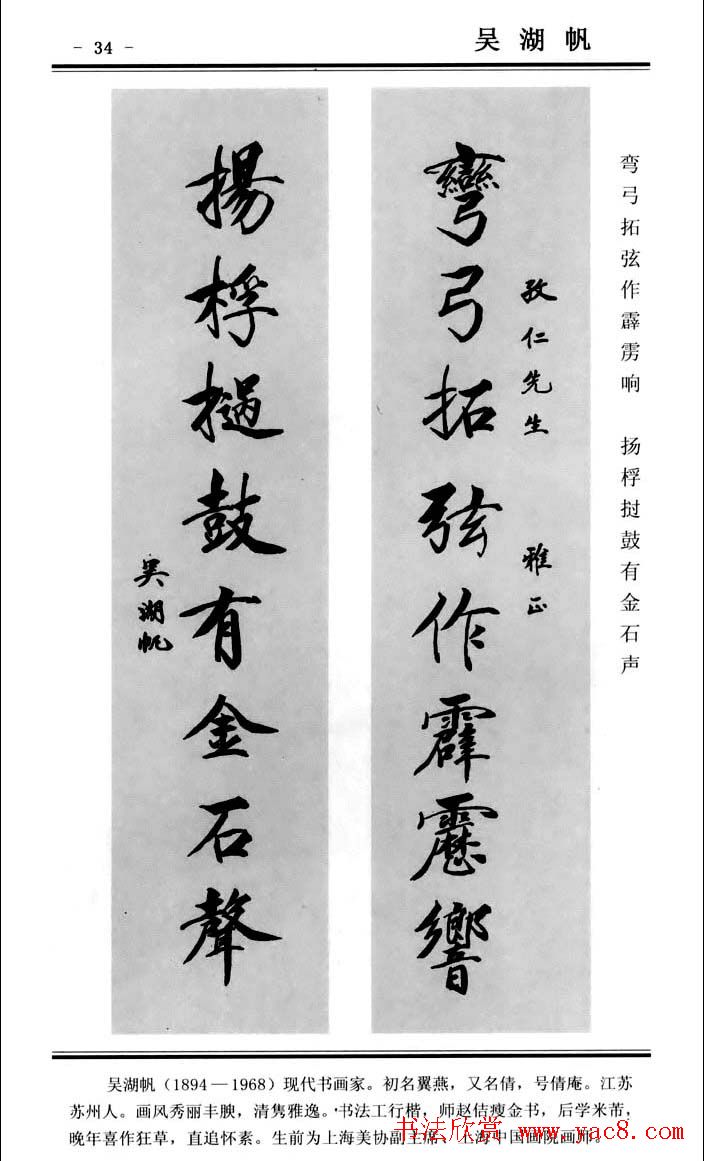 - 34 -
吴湖帆
弯弓拓弦作霹雳响 扬桴挝鼓有金石声
孜仁先生 雅正
彎弓拓弦作霹靂響
揚桴撾鼓有金石聲
吴湖帆
吴湖帆(1894—1968)现代书画家。初名翼燕,又名倩,号倩庵。江苏
苏州人。画风秀丽丰腴,清隽雅逸。书法工行楷,师赵佶瘦金书,后学米芾,
晚年喜作狂草,直追怀素。生前为上海美协副主席、上海中国画院画师。
书法欣赏 www.yac8.com